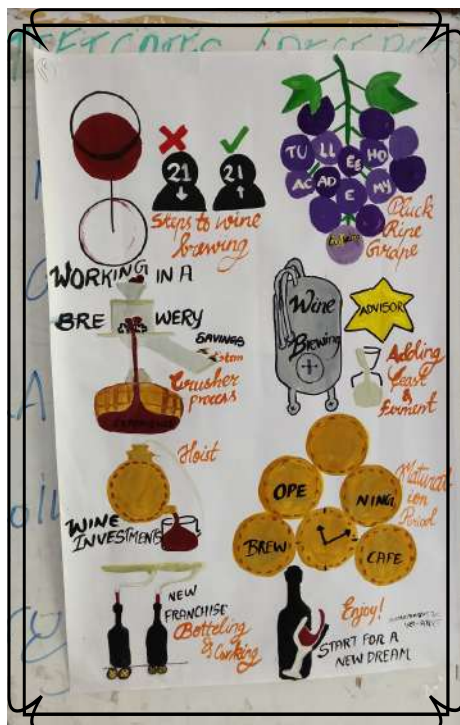 21
21
Steps to wine
brewing
TU LL EE HO
AC AD E MY
Pluck
Ripe
Grape
WORKING IN A
BRE WERY
SAVINGS
Crusher
process
EXPERIENCE
Wine
Brewing
ADVISOR
Adding
Yeast
&
Ferment
Hoist
WINE
INVESTMENTS
OPE NING
BREW CAFE
Maturat
ion
Period
NEW
FRANCHISE
Botteling
& Corking
Enjoy!
START FOR A
NEW DREAM